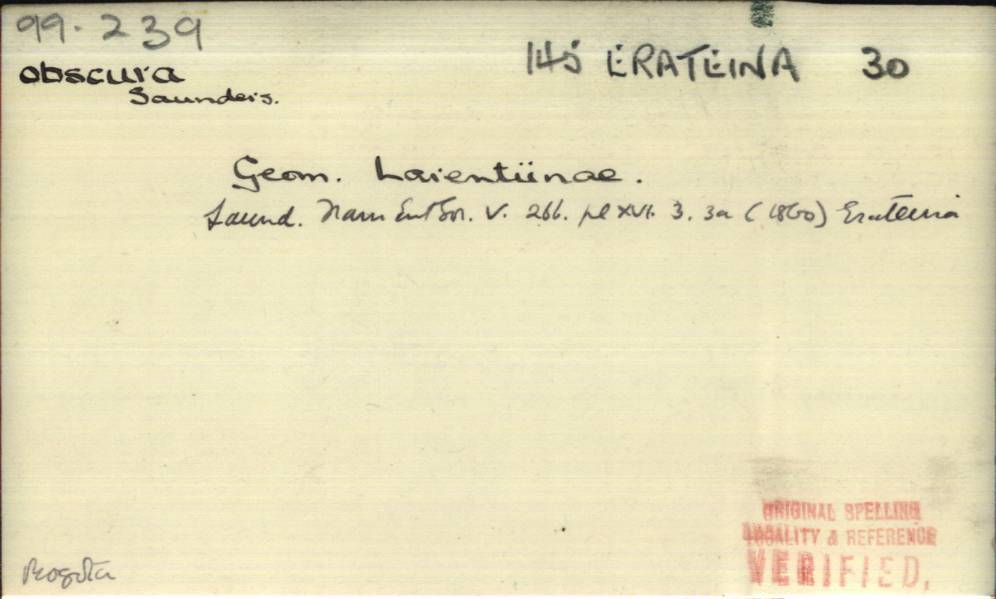 99.239
obscura
Saunders.
145 ERATEINA 30
Geom. Larentiinae.
Saund. Trans Ent Soc. V. 266. pl XVI. 3. 3a (1860) Erateina
ORIGINAL SPELLING
LOCALITY & REFERENCE
VERIFIED.
Bogota